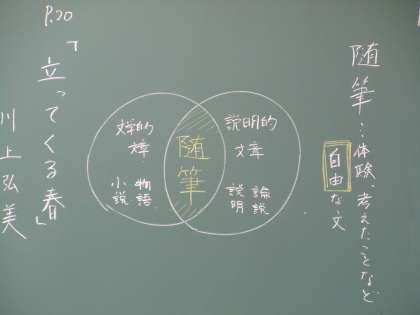 随筆…体験、考えたことなど
自由な文
説明的
文章
論説
説明
随筆
文学的
文章
物語
小説
P.20
「立ってくる春」
川上弘美